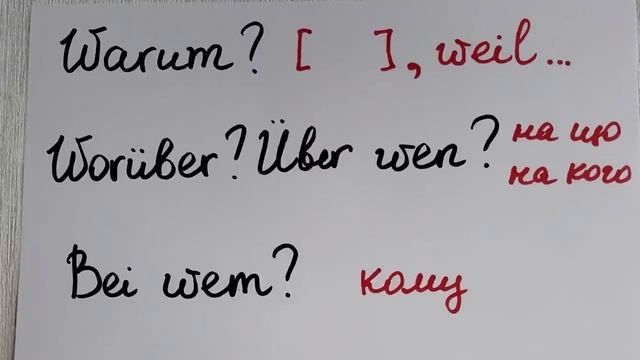 Warum? [ ], weil...
Worüber? Über wen? на що
на кого
Bei wem? кому